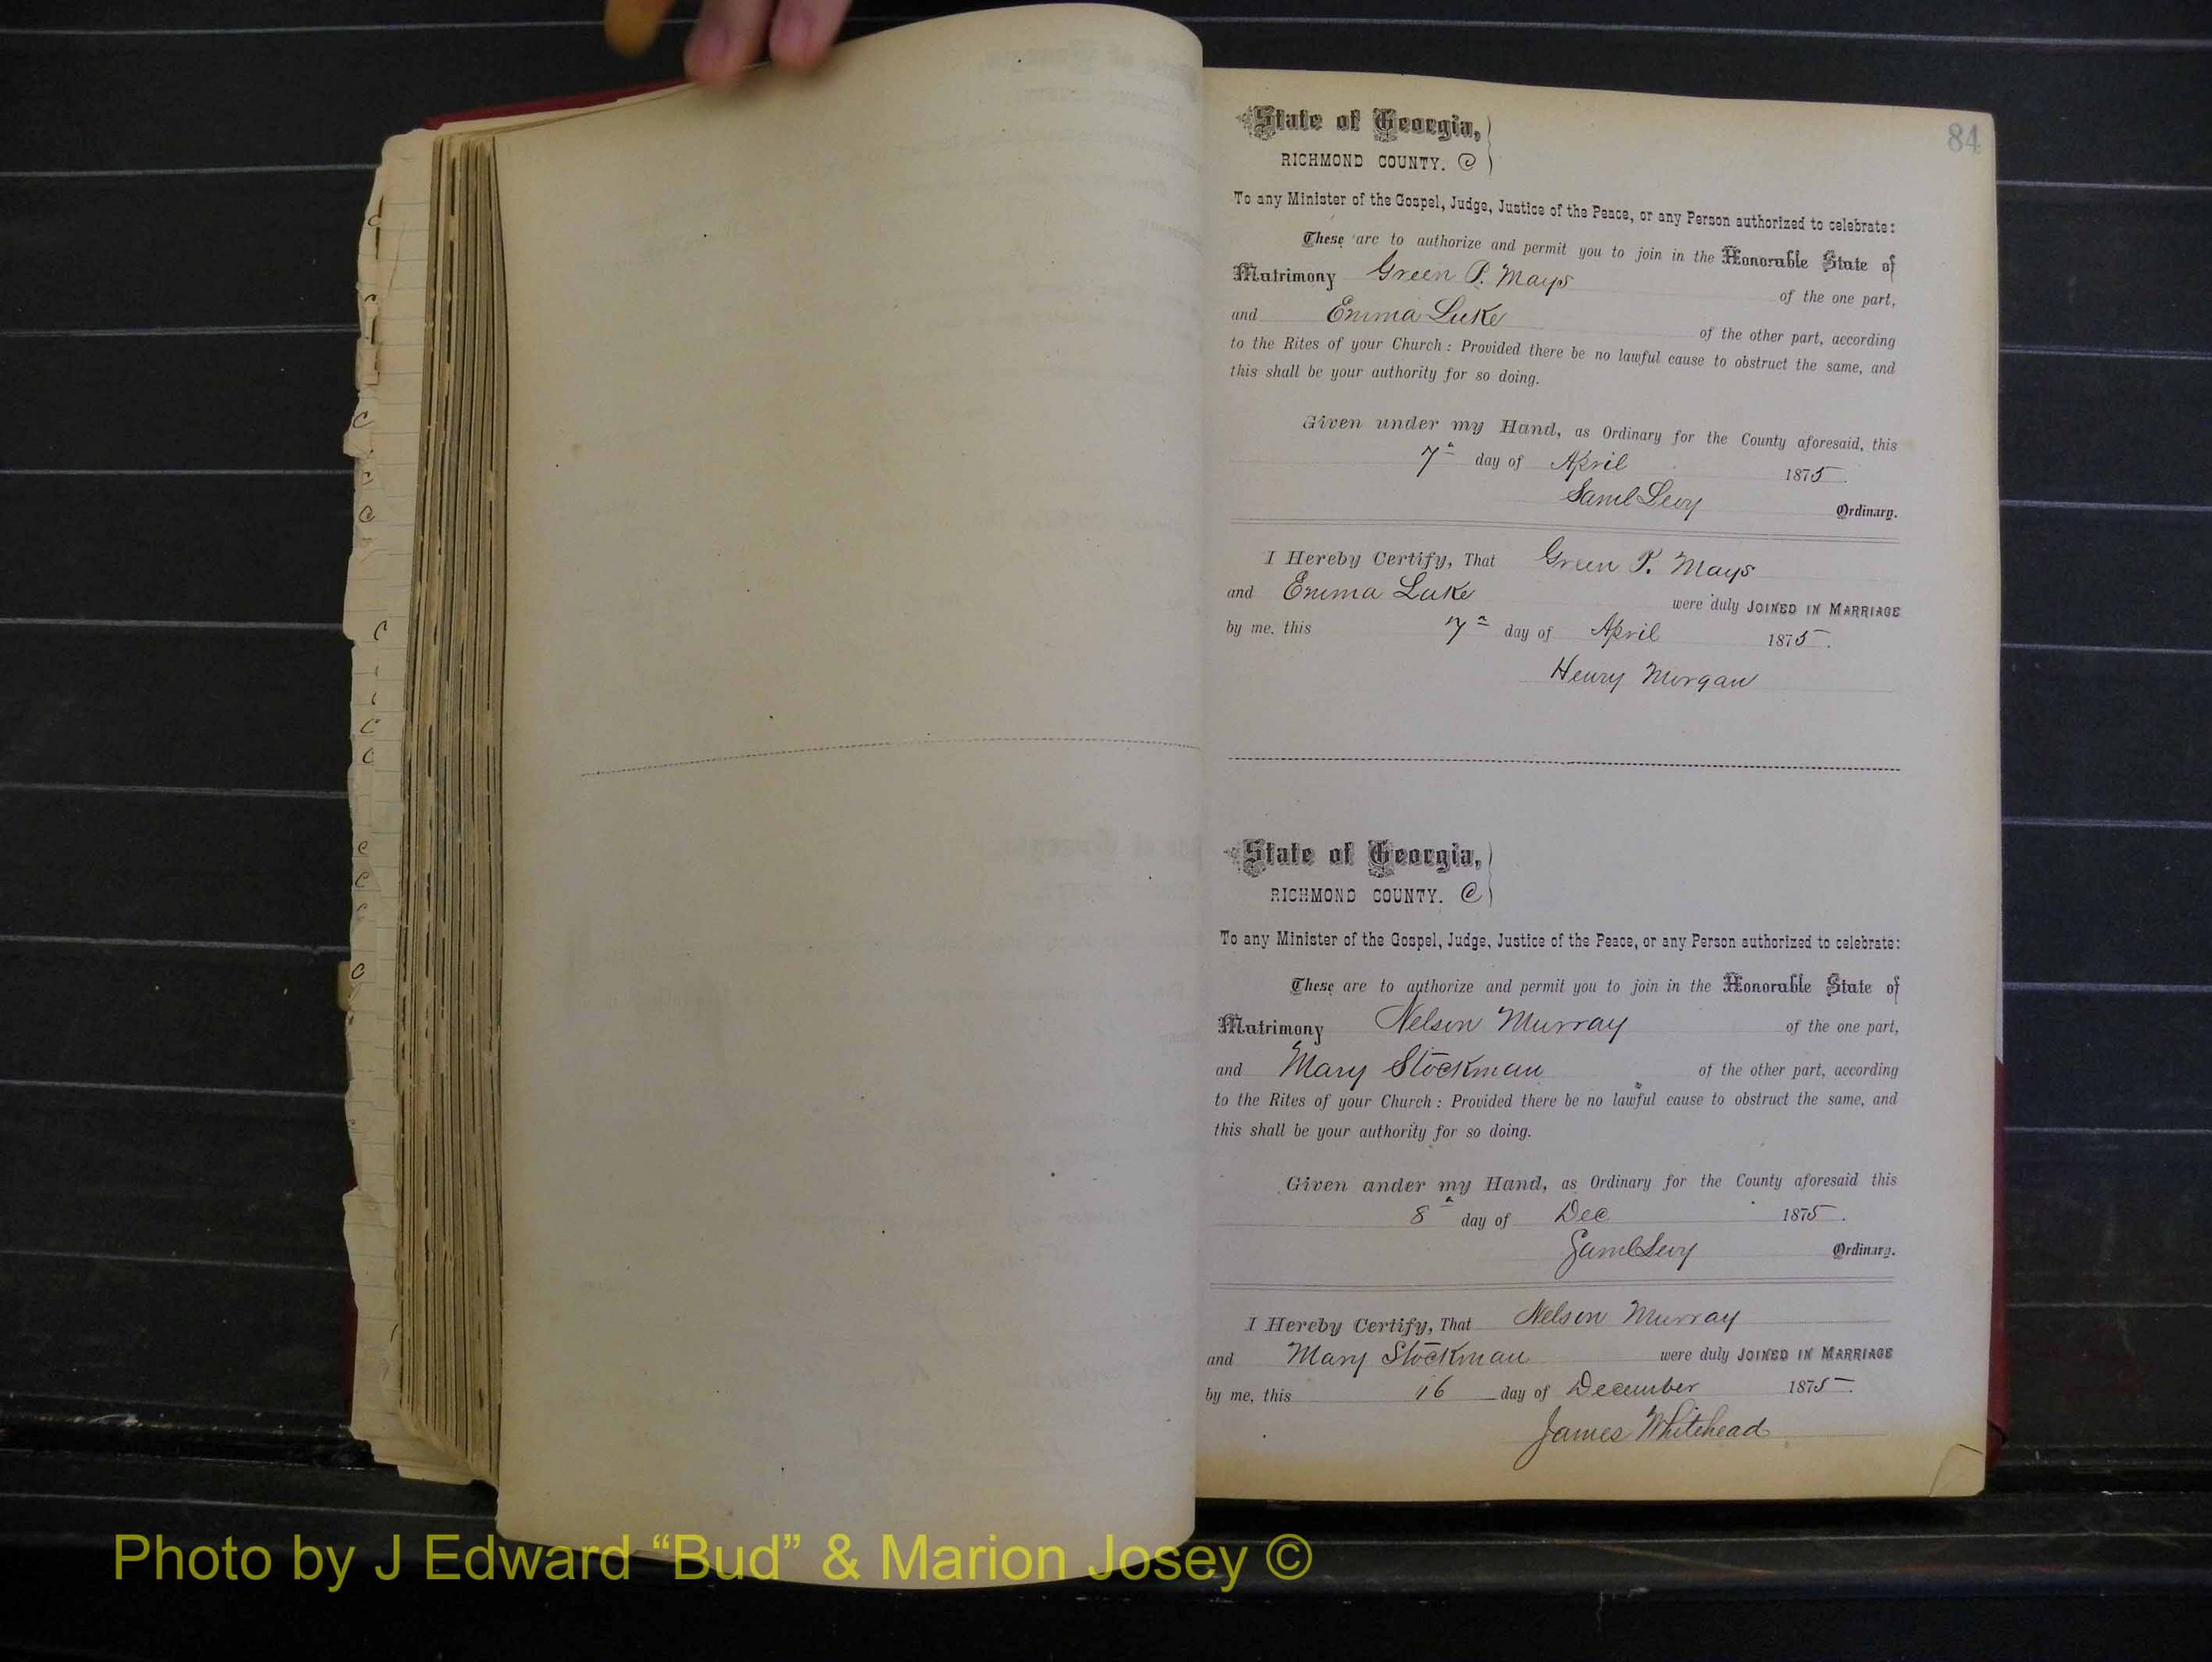 84
State of Georgia,
RICHMOND COUNTY. C
To any Minister of the Gospel, Judge, Justice of the Peace, or any Person authorized to celebrate:
These are to authorize and permit you to join in the Honorable State of
Matrimony Green P. Mays of the one part,
and Emma Luke of the other part, according
to the Rites of your Church: Provided there be no lawful cause to obstruct the same, and
this shall be your authority for so doing.
Given under my Hand, as Ordinary for the County aforesaid, this
7th day of April 1875.
Saml Levy Ordinary.
I Hereby Certify, That Green P. Mays
and Emma Luke were duly JOINED IN MARRIAGE
by me, this 7th day of April 1875.
Henry Morgan
State of Georgia,
RICHMOND COUNTY. C
To any Minister of the Gospel, Judge, Justice of the Peace, or any Person authorized to celebrate:
These are to authorize and permit you to join in the Honorable State of
Matrimony Nelson Murray of the one part,
and Mary Stockman of the other part, according
to the Rites of your Church: Provided there be no lawful cause to obstruct the same, and
this shall be your authority for so doing.
Given under my Hand, as Ordinary for the County aforesaid this
8th day of Dec 1875.
Saml Levy Ordinary.
I Hereby Certify, That Nelson Murray
and Mary Stockman were duly JOINED IN MARRIAGE
by me, this 16 day of December 1875.
James Whitehead
Photo by J Edward “Bud” & Marion Josey ©